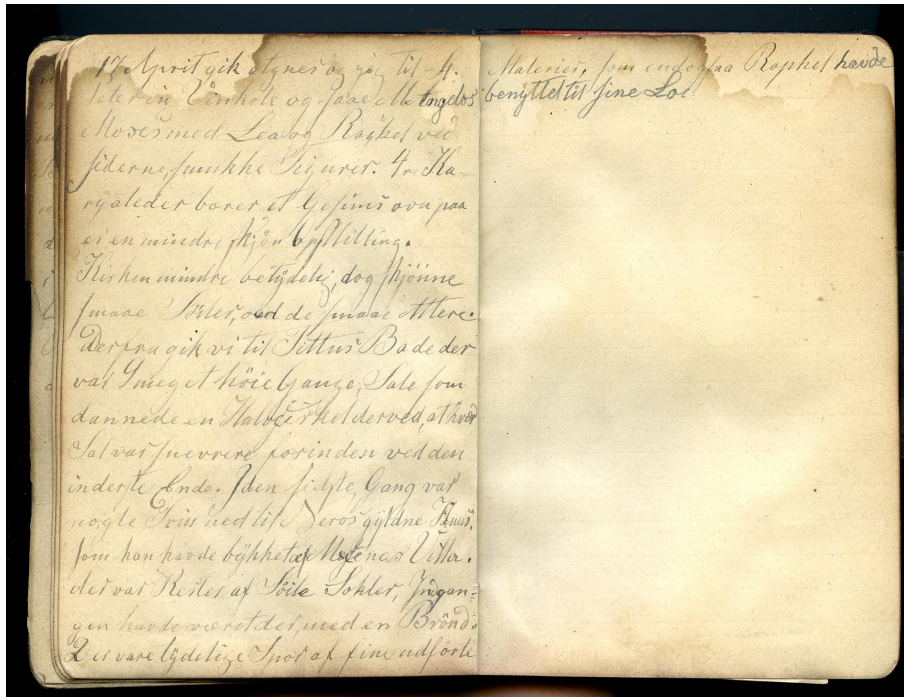 17 April gik Agnes og jeg til S.
Pieter in Vinkole og saae M Angelos
Moses med Lea og Rachel ved
siderne, smukke Figurer. 4re Ka-
ryateder bærer et Gesims ovn paa
er en mindre skjön Opstilling.
Kirken mindre betydelig, dog skjönne
smaae Söiler, ved de smaae Altere.
Derfra gik vi til Tittus Bade der
var 9 meget höie Gange, Sale som
dannede en Halvcirkel derved, at hver
Sal var snevrere forinden ved den
inderste Ende. I den sidste Gang var
nogle Trin ned til Neros gyldne Huus.
som han havde bykket af Mecenas Villa.
der var Rester af Söile Sokler, Indgan-
gen havde været der, med en Brönd.
Der vare tydelige Spor af fine udförte
Malerier, som endogsaa Raphel havde
benyttet til sine Loe